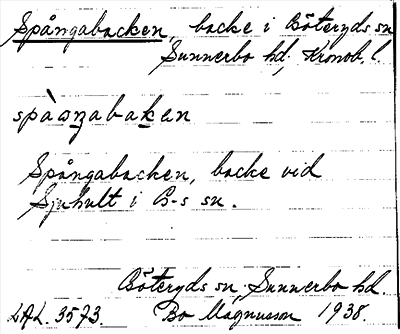 Spångabacken, backe i Böteryds sn
Sunnerbo hd, Kronob. l.
spàɷŋabaken
Spångabacken, backe vid
Sjuhult i B-s sn.
Böteryds sn, Sunnerbo hd.
LAL. 3573. Bo Magnusson 1938.